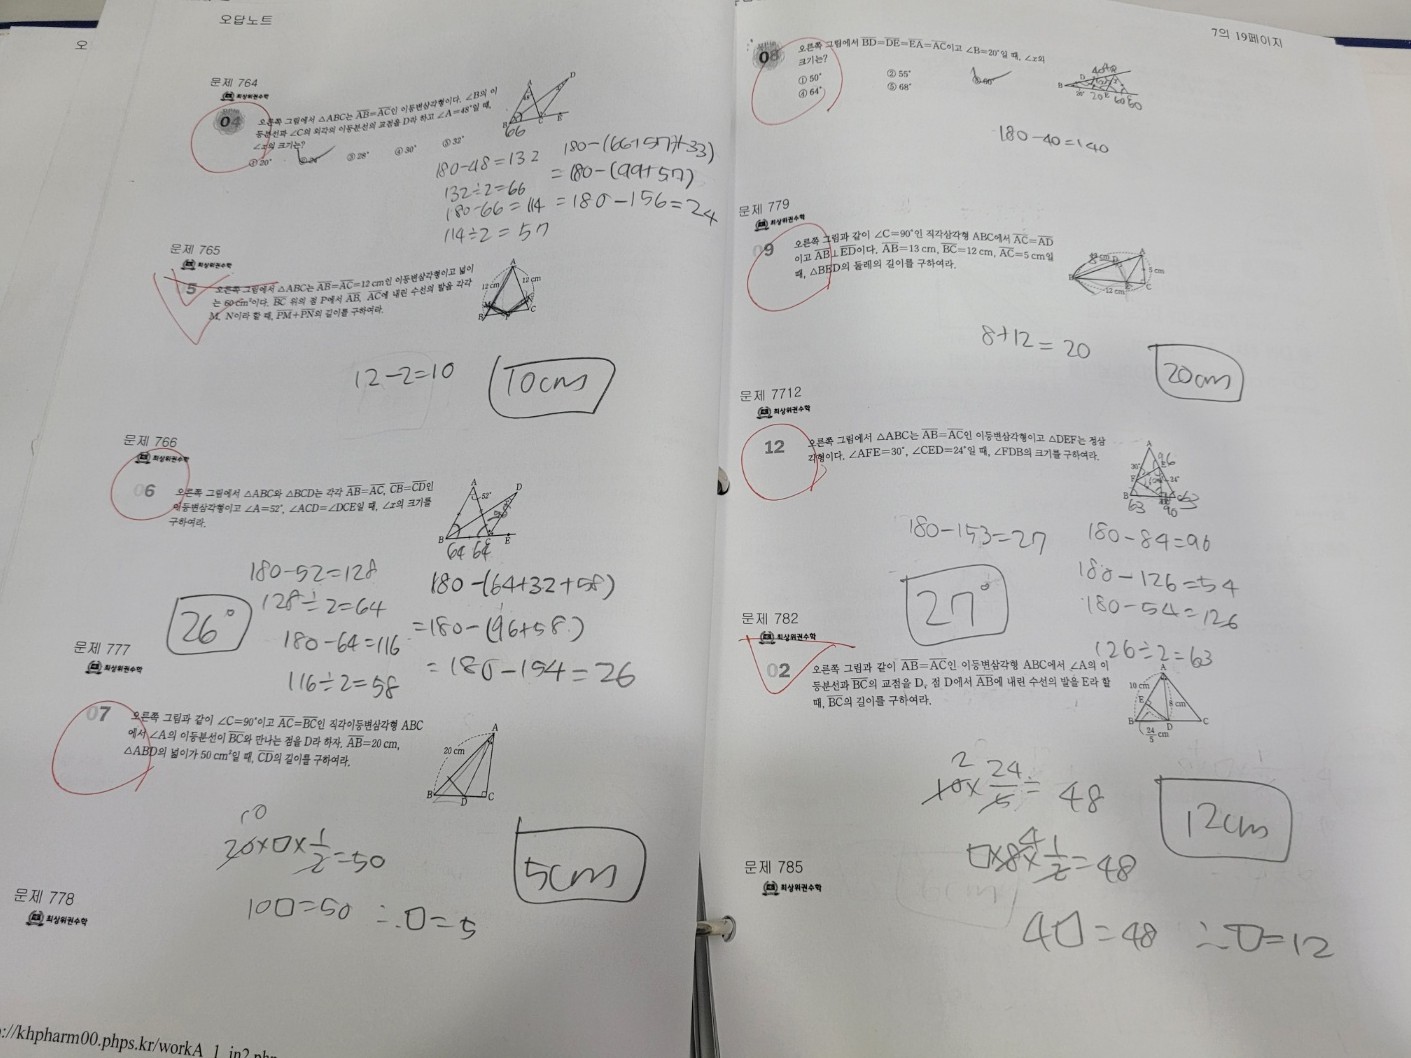 오답노트
오
문제 764
최상위권수학
04
오른쪽 그림에서 △ABC는 AB=AC인 이등변삼각형이다. ∠B의 이
등분선과 ∠C의 외각의 이등분선의 교점을 D라 하고 ∠A=48°일 때,
∠x의 크기는?
① 20° ③ 28° ④ 30° ⑤ 32°
A
D
48°
B C E
66
180-48=132
132÷2=66
180-66=114
114÷2=57
180-(66+57+33)
=180-(99+57)
=180-156=24
문제 765
최상위권수학
5
오른쪽 그림에서 △ABC는 AB=AC=12 cm인 이등변삼각형이고 넓이
는 60 cm²이다. BC 위의 점 P에서 AB, AC에 내린 수선의 발을 각각
M, N이라 할 때, PM+PN의 길이를 구하여라.
A
12 cm 12 cm
M N
B P C
12-2=10
10cm
문제 766
최상위권수학
06
오른쪽 그림에서 △ABC와 △BCD는 각각 AB=AC, CB=CD인
이등변삼각형이고 ∠A=52°, ∠ACD=∠DCE일 때, ∠x의 크기를
구하여라.
A
52°
D
B C E
64 64
180-52=128
128÷2=64
180-64=116
116÷2=58
26°
180-(64+32+58)
=180-(96+58)
=180-154=26
문제 777
최상위권수학
07
오른쪽 그림과 같이 ∠C=90°이고 AC=BC인 직각이등변삼각형 ABC
에서 ∠A의 이등분선이 BC와 만나는 점을 D라 하자. AB=20 cm,
△ABD의 넓이가 50 cm²일 때, CD의 길이를 구하여라.
A
20 cm
B D C
10
20×□×1/2=50
10□=50 ∴□=5
5cm
문제 778
최상위권수학
://khpharm00.phps.kr/workA_1_in2.php
7의 19페이지
08
오른쪽 그림에서 BD=DE=EA=AC이고 ∠B=20°일 때, ∠x의
크기는?
① 50° ② 55° 60°
④ 64° ⑤ 68°
180-40=140
문제 779
최상위권수학
09
오른쪽 그림과 같이 ∠C=90°인 직각삼각형 ABC에서 AC=AD
이고 AB⊥ED이다. AB=13 cm, BC=12 cm, AC=5 cm일
때, △BED의 둘레의 길이를 구하여라.
A
D
5 cm
B E C
12 cm
8+12=20
20cm
문제 7712
최상위권수학
12
오른쪽 그림에서 △ABC는 AB=AC인 이등변삼각형이고 △DEF는 정삼
각형이다. ∠AFE=30°, ∠CED=24°일 때, ∠FDB의 크기를 구하여라.
A
96
30° E
F 24°
B
63 63
90
180-153=27
27°
180-84=96
180-126=54
180-54=126
126÷2=63
문제 782
최상위권수학
02
오른쪽 그림과 같이 AB=AC인 이등변삼각형 ABC에서 ∠A의 이
등분선과 BC의 교점을 D, 점 D에서 AB에 내린 수선의 발을 E라 할
때, BC의 길이를 구하여라.
A
10 cm
E 8 cm
B D C
24/5 cm
2
10×24/5=48
4
□×8×1/2=48
4□=48 ∴□=12
12cm
문제 785
최상위권수학